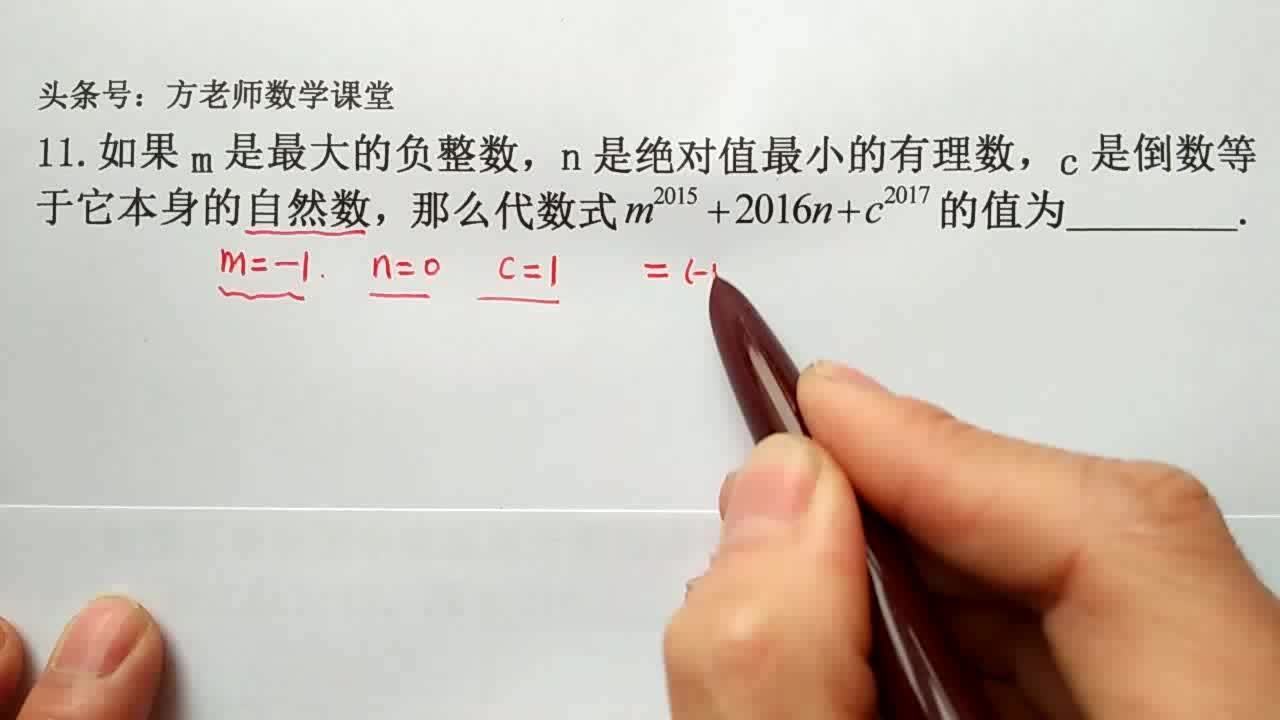 头条号：方老师数学课堂
11.如果 m 是最大的负整数，n 是绝对值最小的有理数，c 是倒数等
于它本身的自然数，那么代数式 m^2015 +2016n+c^2017 的值为________.
m=-1. n=0 c=1 =(-1